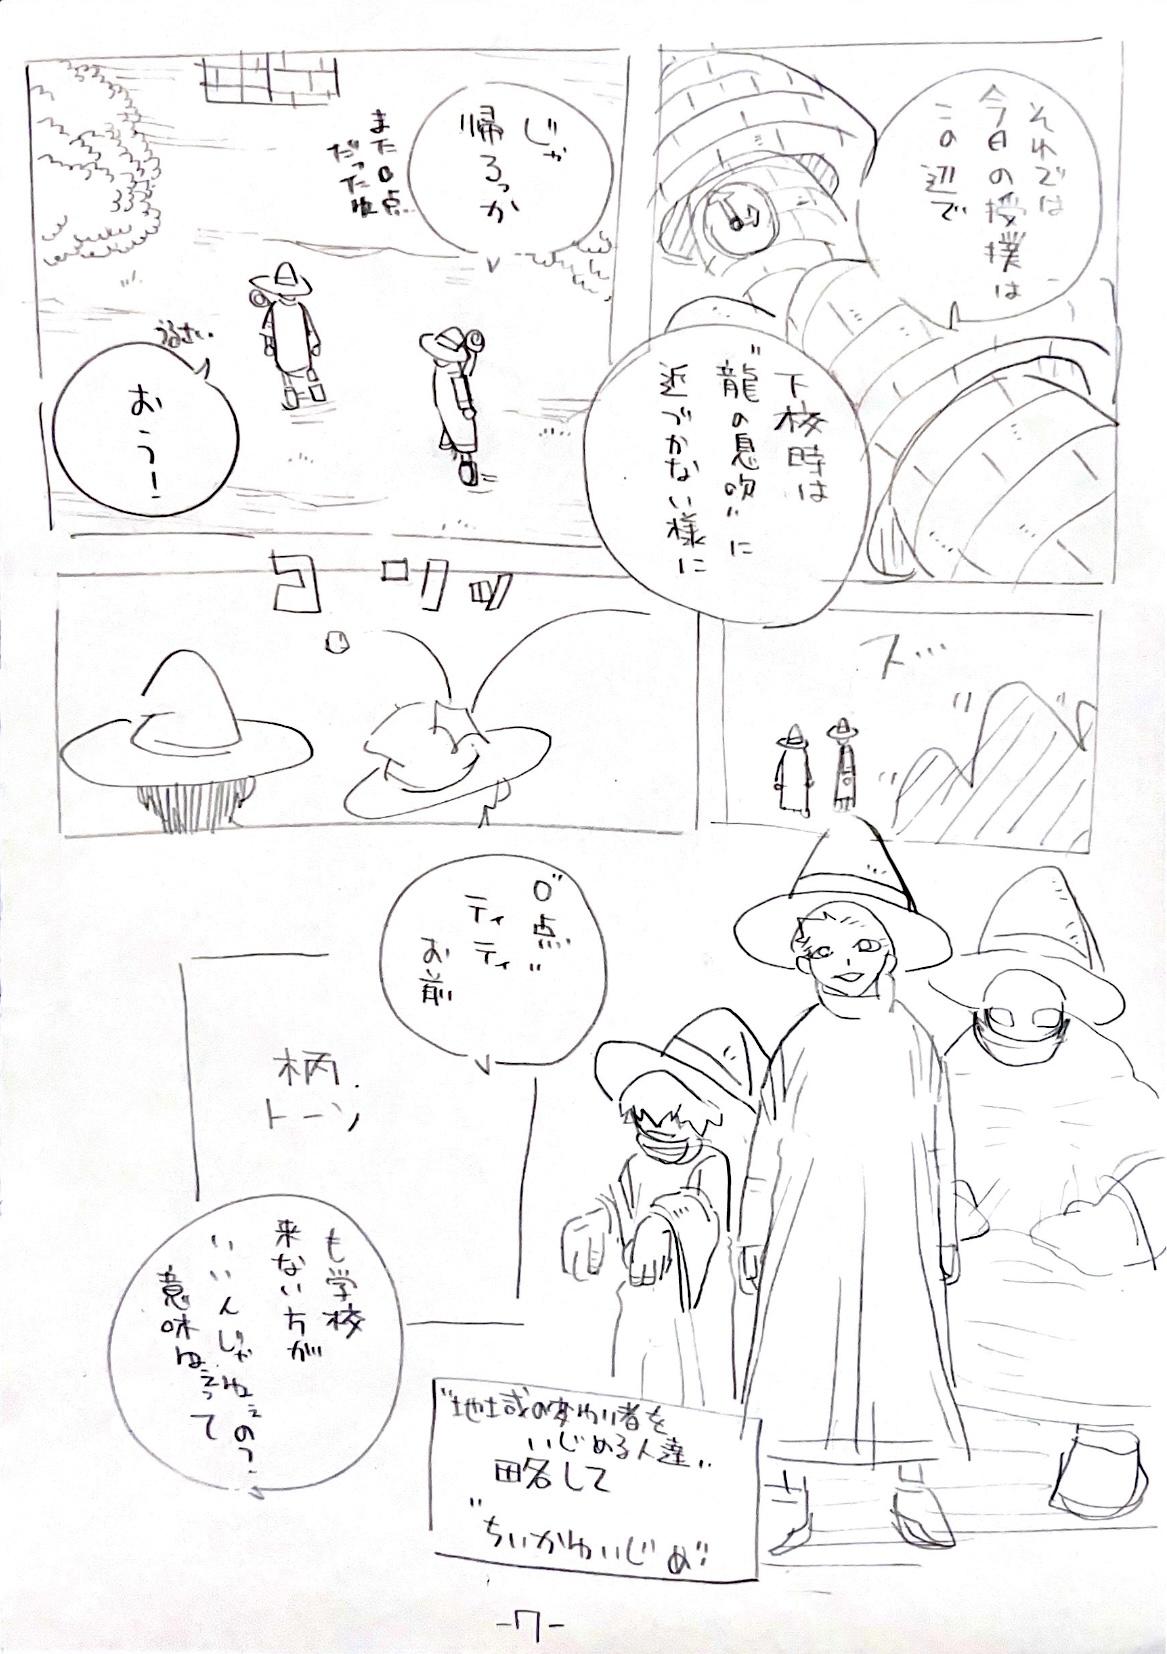 それでは
今日の授業は
この辺で
下校時は
"龍の息吹"に
近づかない様に
じゃ
帰ろっか
また0点
だったね
うるさい
おう!
ス…
コロッ
"0点
ティティ"
お前
も学校
来ない方が
いいんじゃねぇの?
意味ねえって
柄
トーン
"地域の変わり者を
いじめる人達"
略して
"ちいかわいじめ"
-7-